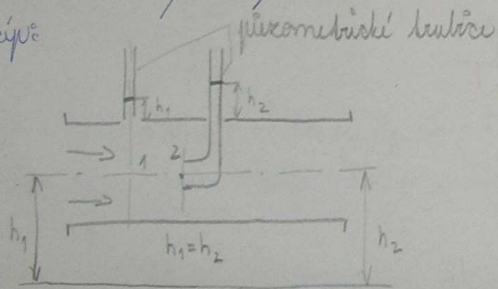 piezometrické trubice
h₁
h₂
1
2
h₁
h₁=h₂
h₂